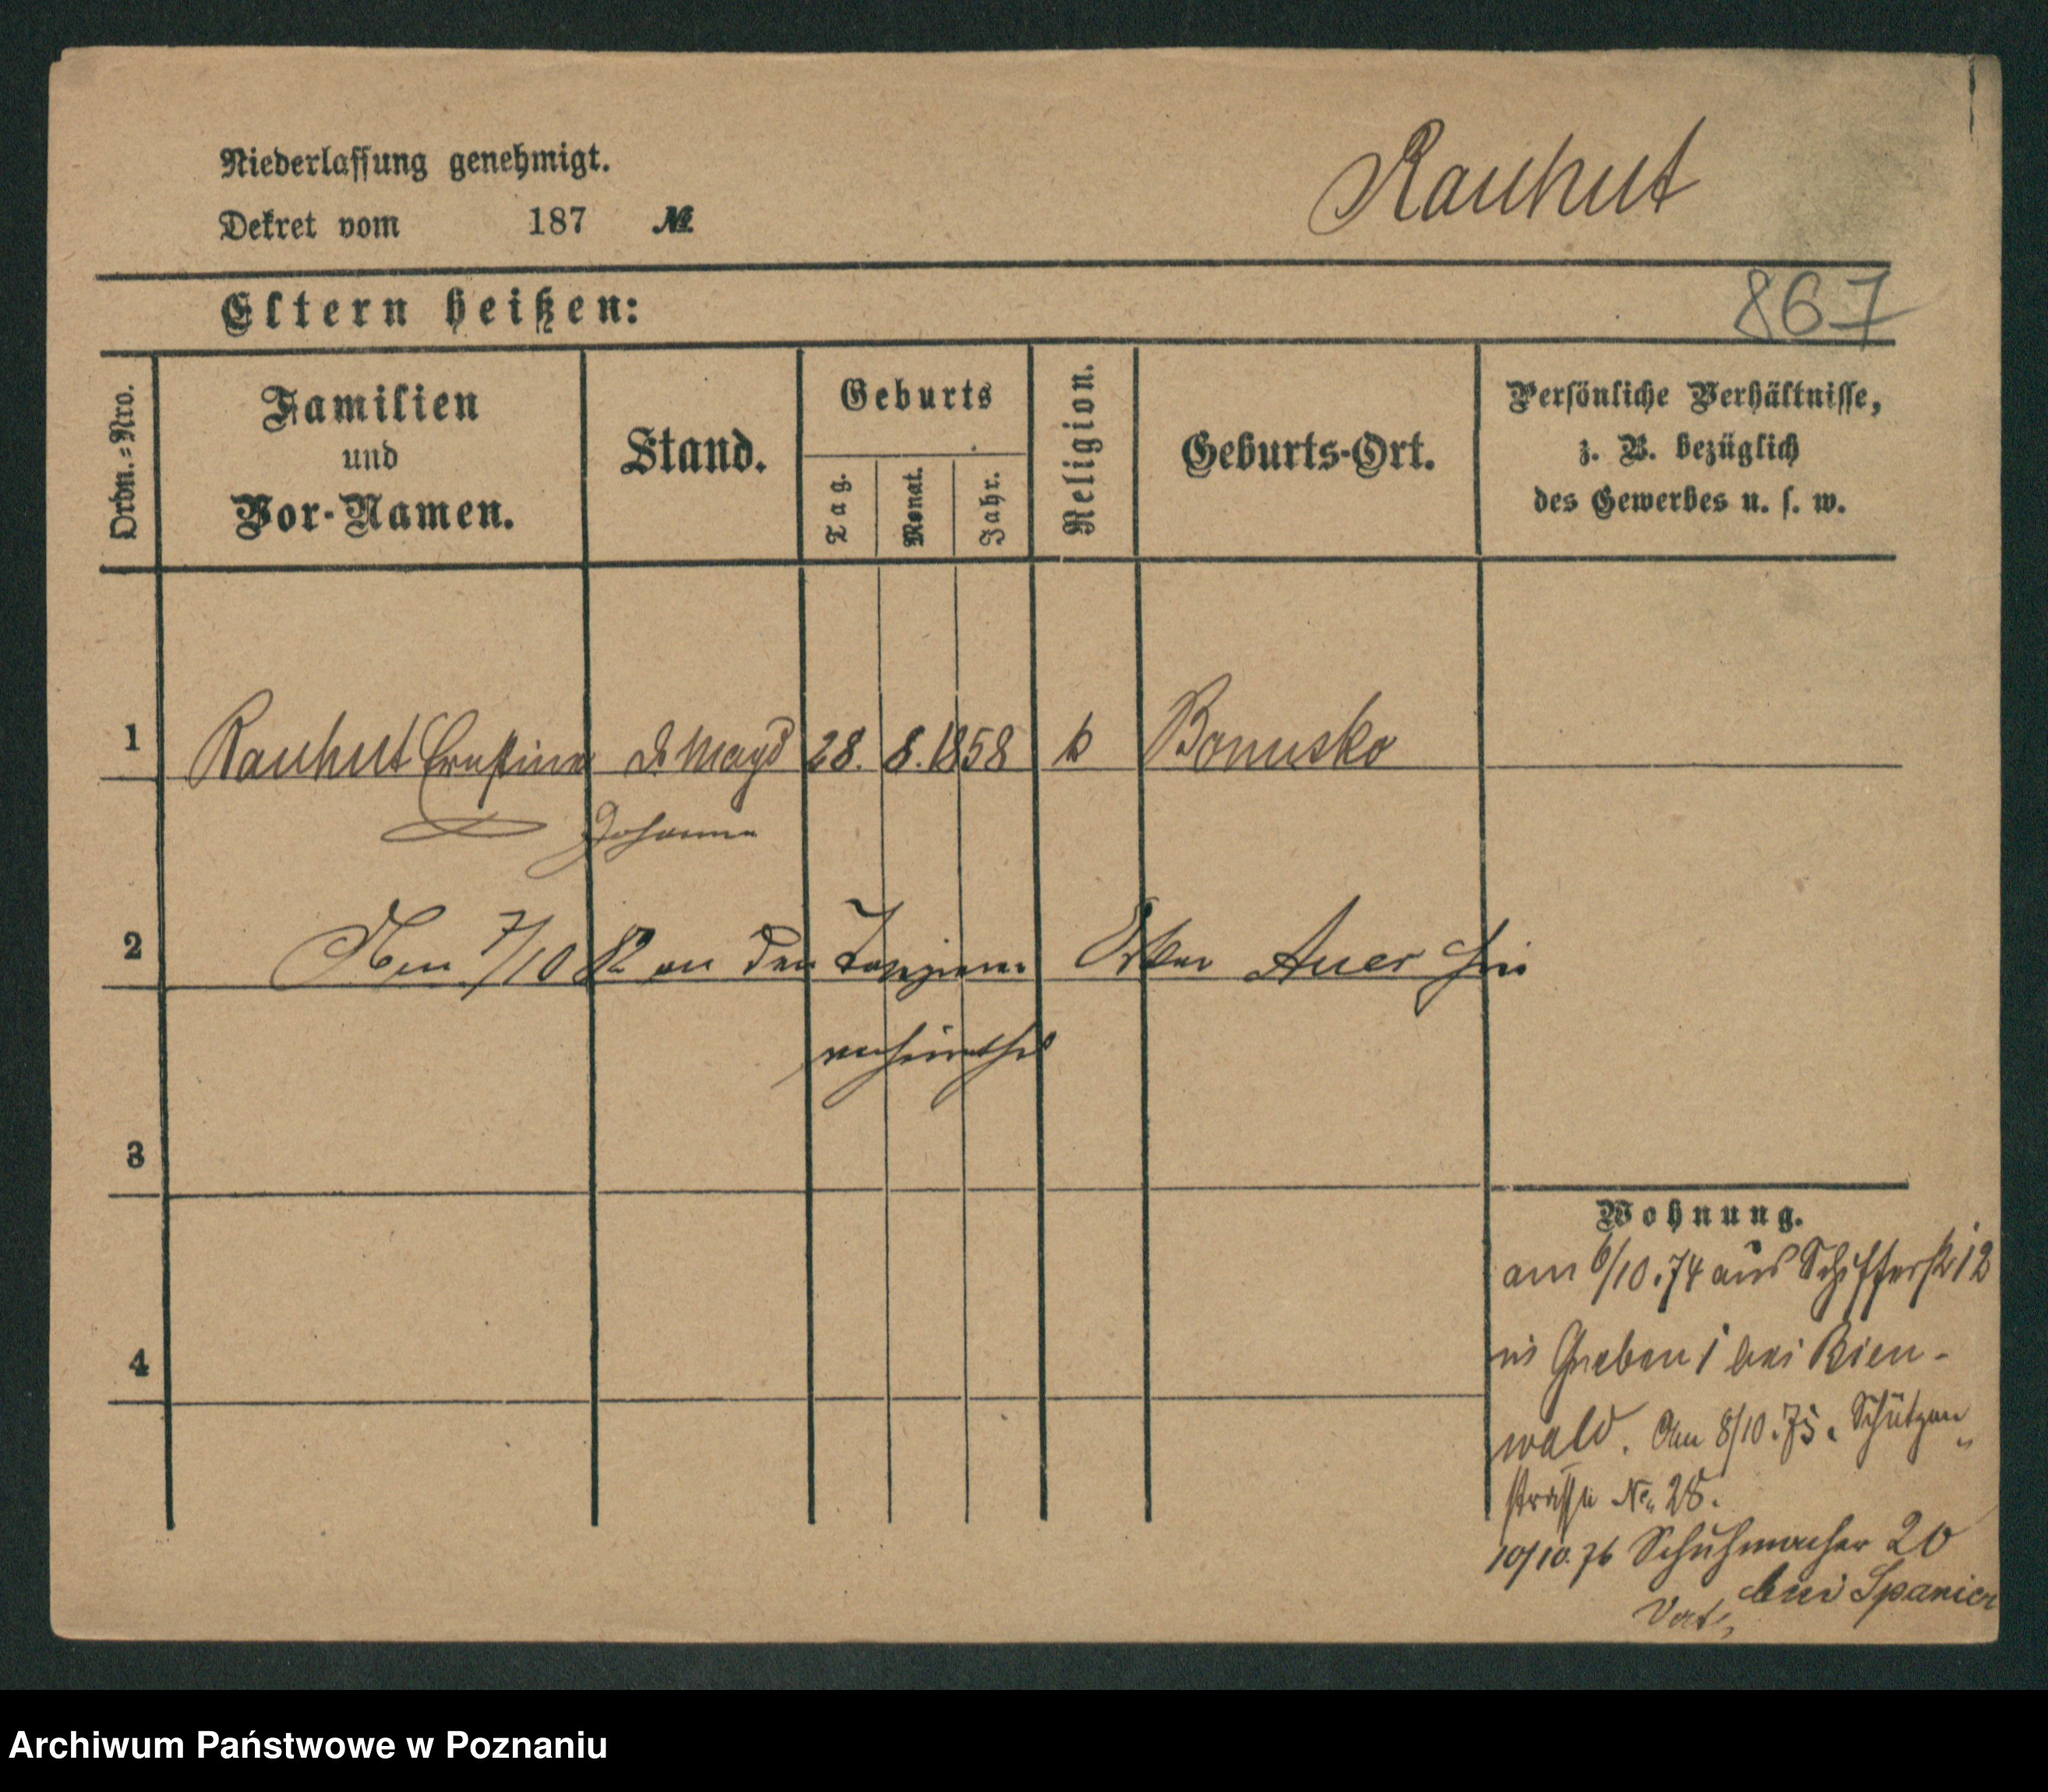 Niederlassung genehmigt.
Dekret vom 187 №
Rauhut
Eltern heißen:
867
Ordn.-Nro.
Familien
und
Vor-Namen.
Stand.
Geburts
Tag.
Monat.
Jahr.
Religion.
Geburts-Ort.
Persönliche Verhältnisse,
z. B. bezüglich
des Gewerbes u. s. w.
1 Rauhut Ernstine d Magd 28. 8. 1858 k Bonusko
Johanna
2 7/10 82 an den Auer hie
verheirathet
3
Wohnung.
am 6/10.74 aus Schifferstr 12
Graben 1 bei Bien-
4
wald. Am 8/10.75. Schützen
strasse No 28.
10/10.76 Schuhmacher 20
bei Spanier
Archiwum Państwowe w Poznaniu